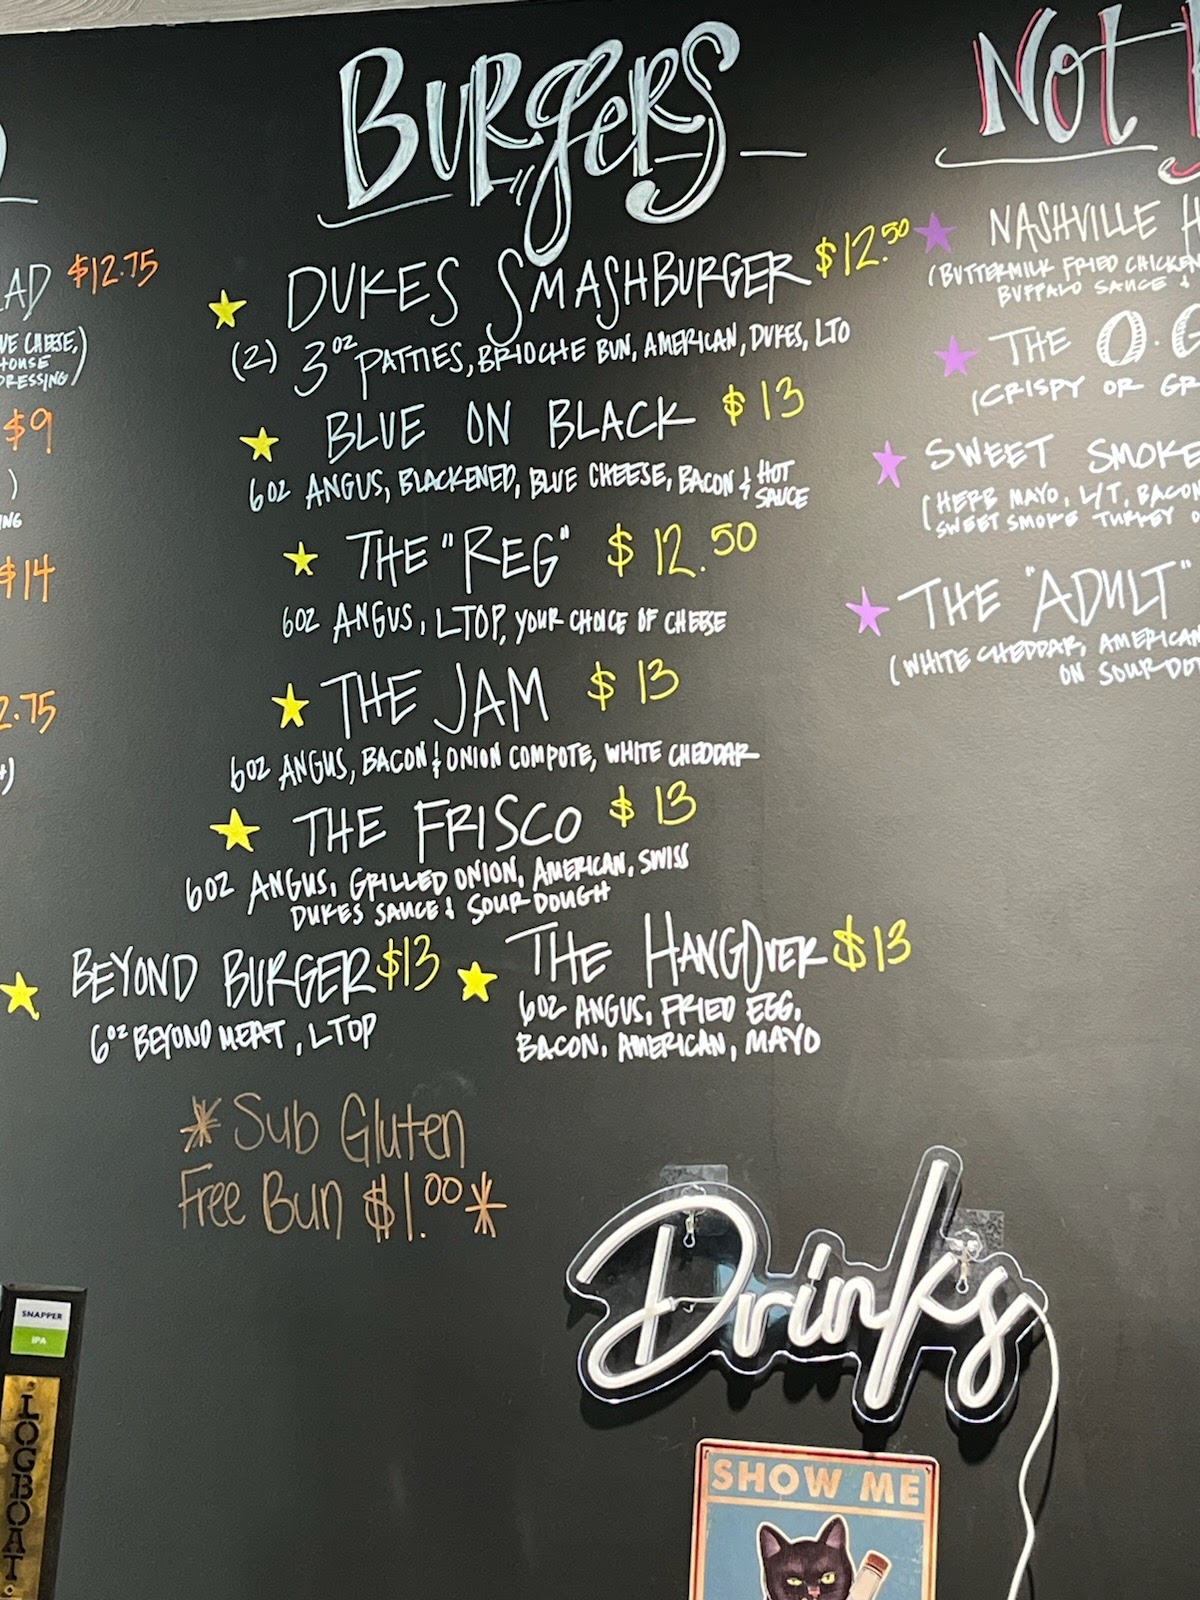 $12.75
$9
$14
Burgers
DUKES SMASHBURGER $12.50
(2) 3oz PATTIES, BRIOCHE BUN, AMERICAN, DUKES, LTO
BLUE ON BLACK $13
6oz ANGUS, BLACKENED, BLUE CHEESE, BACON & HOT
SAUCE
THE "REG" $12.50
6oz ANGUS, LTOP, YOUR CHOICE OF CHEESE
THE JAM $13
6oz ANGUS, BACON & ONION COMPOTE, WHITE CHEDDAR
THE FRISCO $13
6oz ANGUS, GRILLED ONION, AMERICAN, SWISS
DUKES SAUCE & SOUR DOUGH
BEYOND BURGER $13
6oz BEYOND MEAT, LTOP
THE HANGOVER $13
6oz ANGUS, FRIED EGG,
BACON, AMERICAN, MAYO
*Sub Gluten
Free Bun $1.00*
Not
NASHVILLE
(BUTTERMILK FRIED CHICKEN
BUFFALO SAUCE &
THE O.G
(CRISPY OR GR
SWEET SMOKE
(HERB MAYO, L/T, BACON
SWEET SMOKE TURKEY O
THE "ADULT"
(WHITE CHEDDAR, AMERICAN
ON SOURDO
Drinks
SNAPPER
IPA
LOGBOAT
SHOW ME